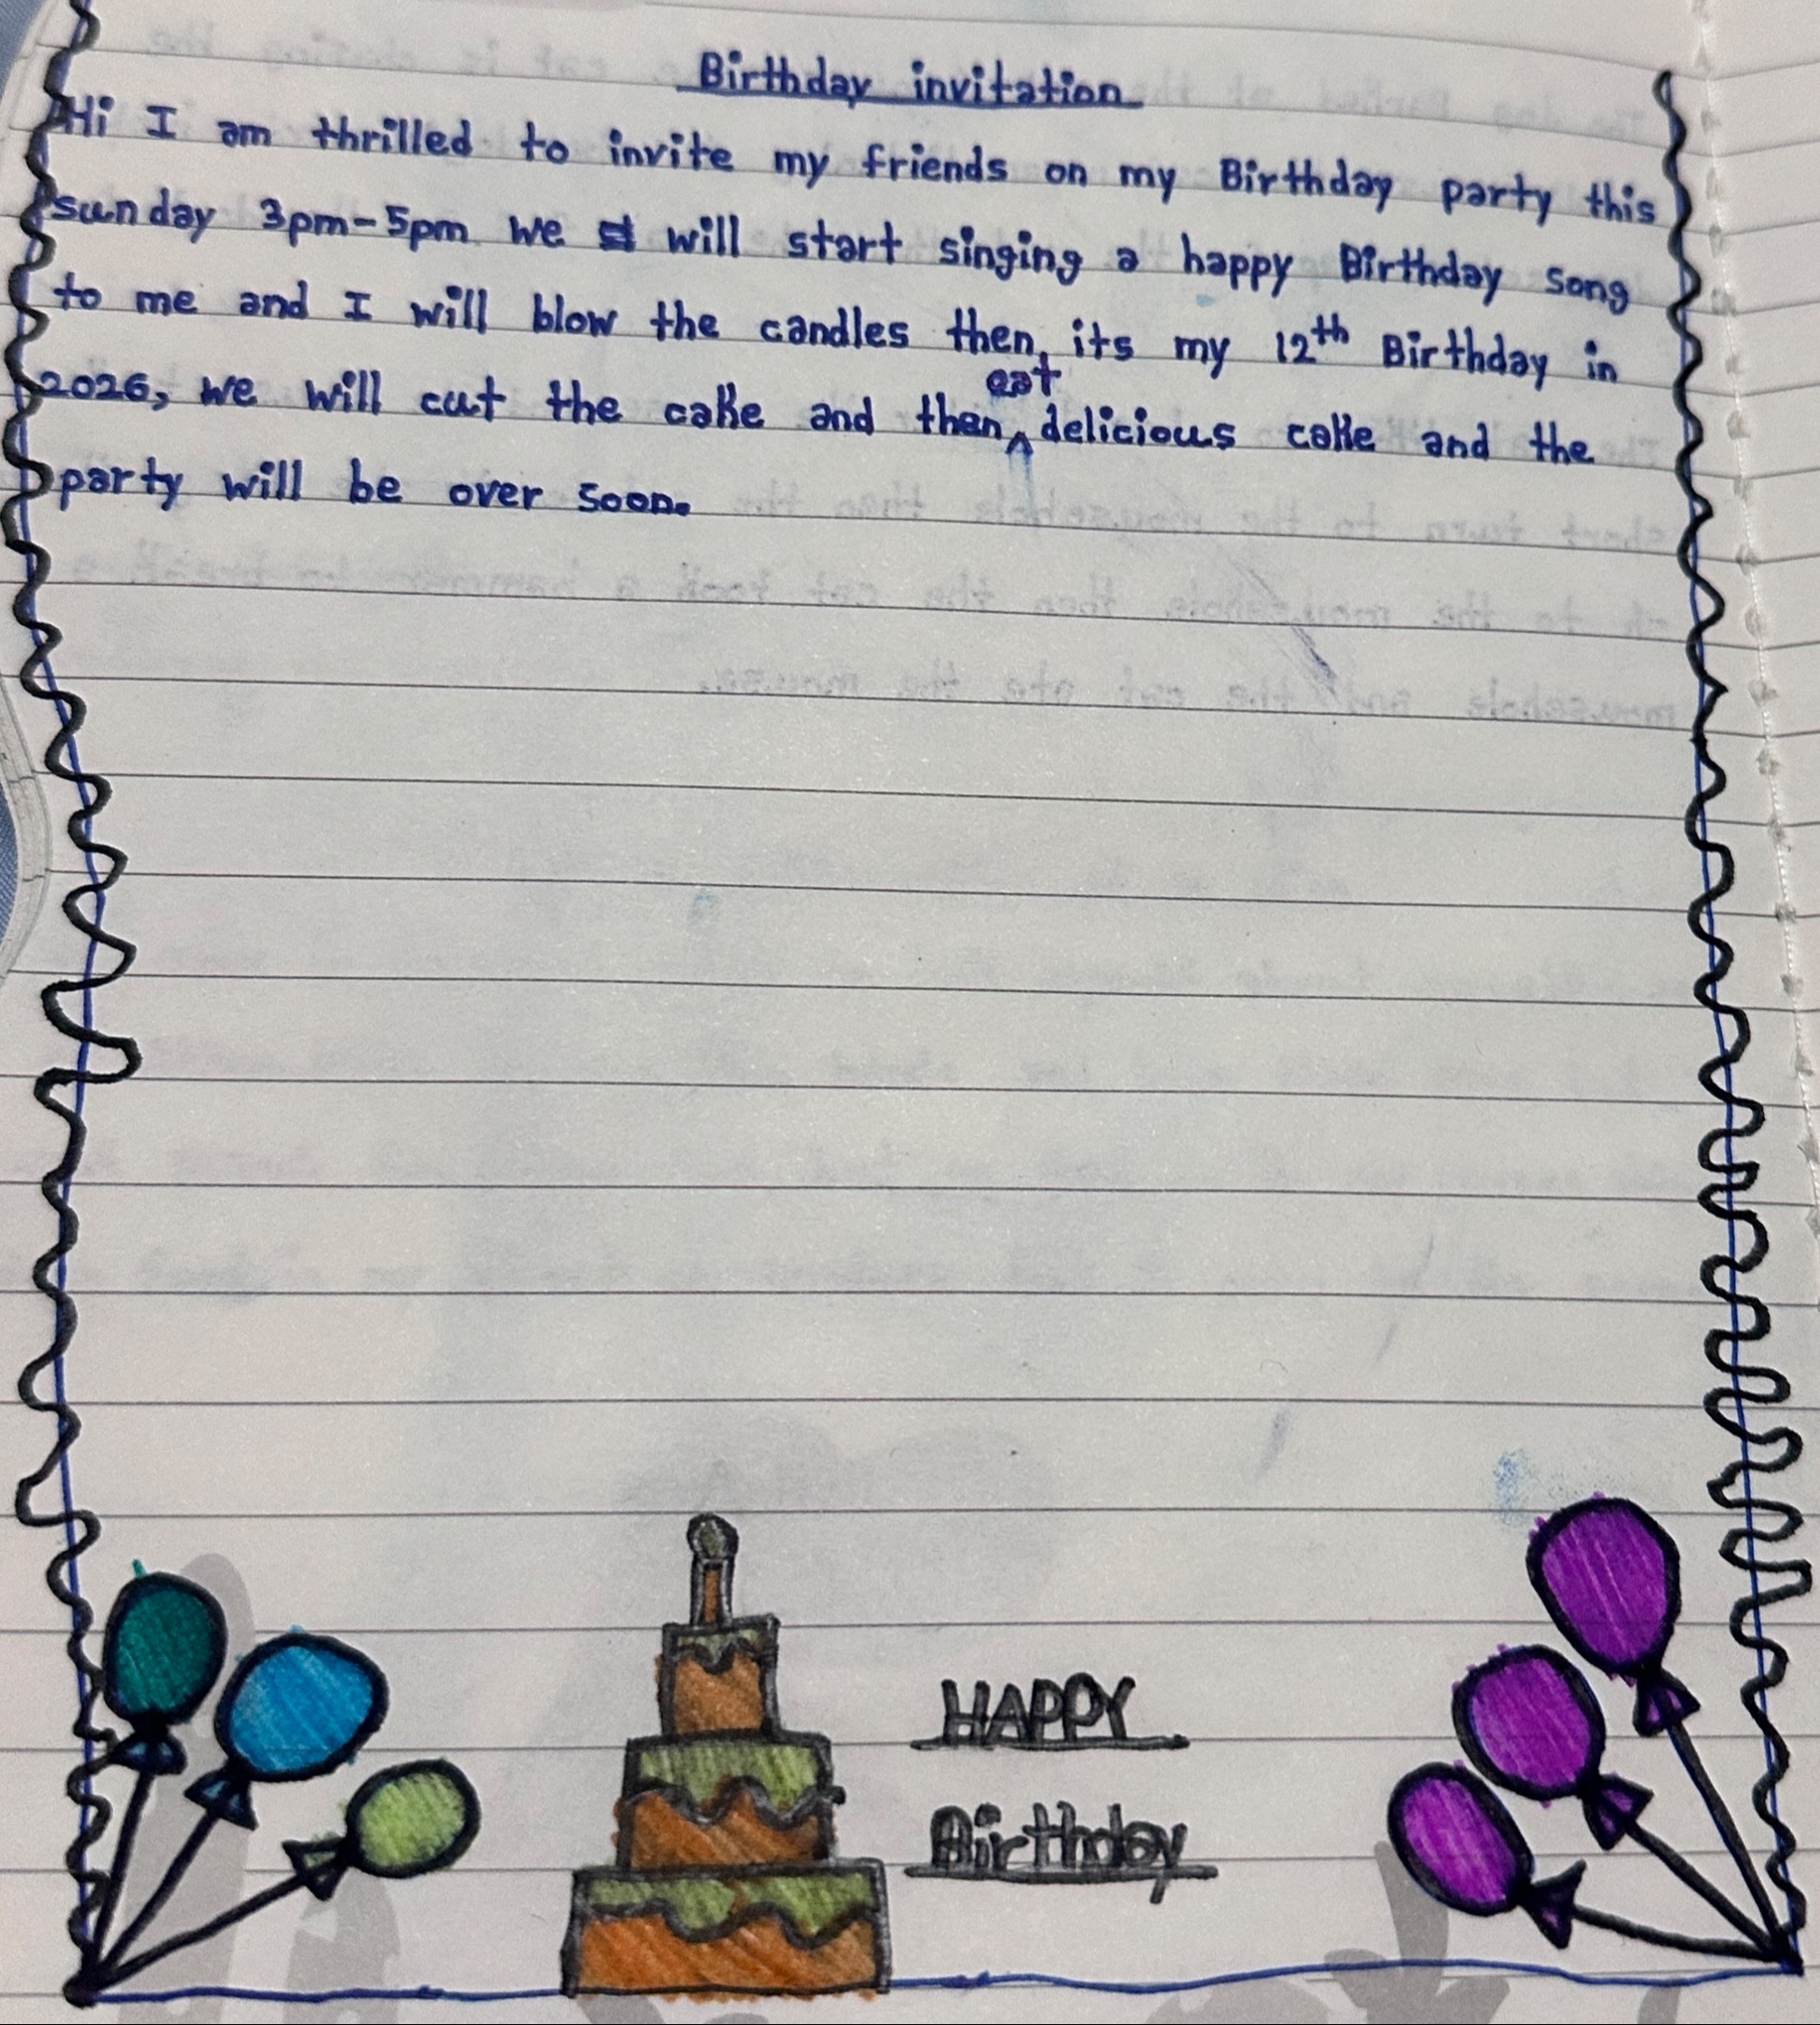 Birthday invitation
Hi I am thrilled to invite my friends on my Birthday party this
sunday 3pm-5pm we st will start singing a happy Birthday song
to me and I will blow the candles then, its my 12th Birthday in
2026, we will cut the cake and then eat delicious cake and the
party will be over soon.
HAPPY
Birthday